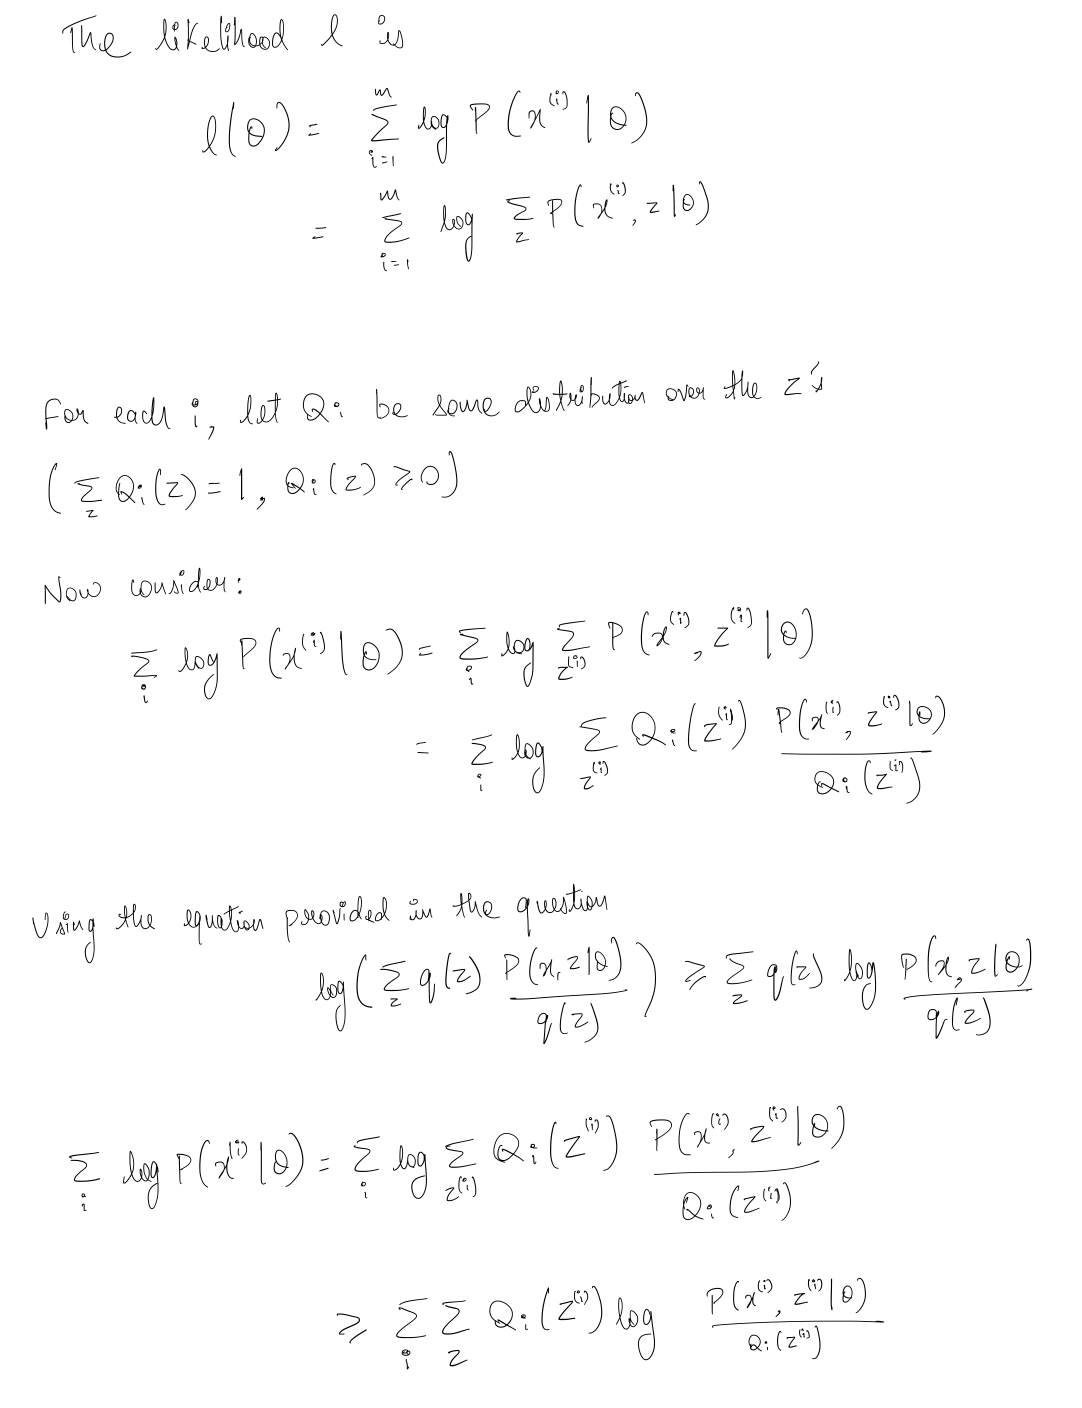 The likelihood l is
l(θ) = \sum_{i=1}^{m} log P(x^{(i)} | θ)
= \sum_{i=1}^{m} log \sum_{z} P(x^{(i)}, z | θ)
For each i, let Qi be some distribution over the z's
(\sum_{z} Q_i(z) = 1, Q_i(z) ≥ 0)
Now consider:
\sum_{i} log P(x^{(i)} | θ) = \sum_{i} log \sum_{z^{(i)}} P(x^{(i)}, z^{(i)} | θ)
= \sum_{i} log \sum_{z^{(i)}} Q_i(z^{(i)}) \frac{P(x^{(i)}, z^{(i)} | θ)}{Q_i(z^{(i)})}
Using the equation provided in the question
log(\sum_{z} q(z) \frac{P(x, z | θ)}{q(z)}) ≥ \sum_{z} q(z) log \frac{P(x, z | θ)}{q(z)}
\sum_{i} log P(x^{(i)} | θ) = \sum_{i} log \sum_{z^{(i)}} Q_i(z^{(i)}) \frac{P(x^{(i)}, z^{(i)} | θ)}{Q_i(z^{(i)})}
≥ \sum_{i} \sum_{z} Q_i(z^{(i)}) log \frac{P(x^{(i)}, z^{(i)} | θ)}{Q_i(z^{(i)})}